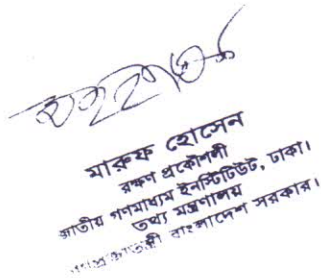 মারুফ হোসেন
রক্ষণ প্রকৌশলী
জাতীয় গণমাধ্যম ইনস্টিটিউট, ঢাকা।
তথ্য মন্ত্রণালয়
গণপ্রজাতন্ত্রী বাংলাদেশ সরকার।